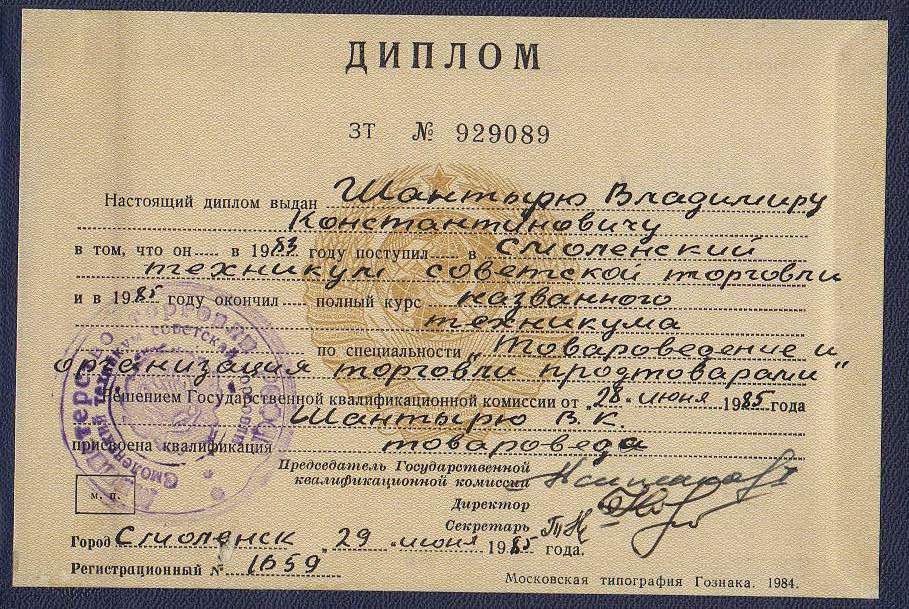 ДИПЛОМ
ЗТ № 929089
Настоящий диплом выдан Шантырю Владимиру
Константиновичу
в том, что он в 1983 году поступил в Смоленский
техникум советской торговли
и в 1985 году окончил полный курс названного
техникума
по специальности „Товароведение и
организация торговли продтоварами"
Решением Государственной квалификационной комиссии от „28" июня 1985 года
Шантырю В. К.
присвоена квалификация товароведа
Председатель Государственной
квалификационной комиссии
Директор
Секретарь
М. П.
Город Смоленск, 29 „ июня 1985 года.
Регистрационный № 1659
Московская типография Гознака. 1984.